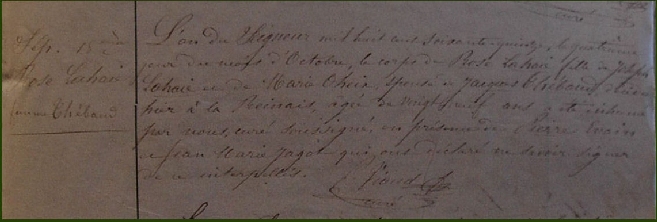 Sép. 15
Rose Lehaie
femme Thébaud
L'an du Seigneur mil huit cent soixante quinze, le quatrième
jour du mois d'Octobre, le corps de Rose Lehaie fille de Joseph
Lehaie et de Marie Oheix, épouse de Jacques Thébaud, décédée
hier à la Heinais, âgée de vingt neuf ans a été inhumé
par nous, curé soussigné, en présence de Pierre Evain
et Jean Marie Jagot qui ont déclaré ne savoir signer
de ce interpellés.
curé